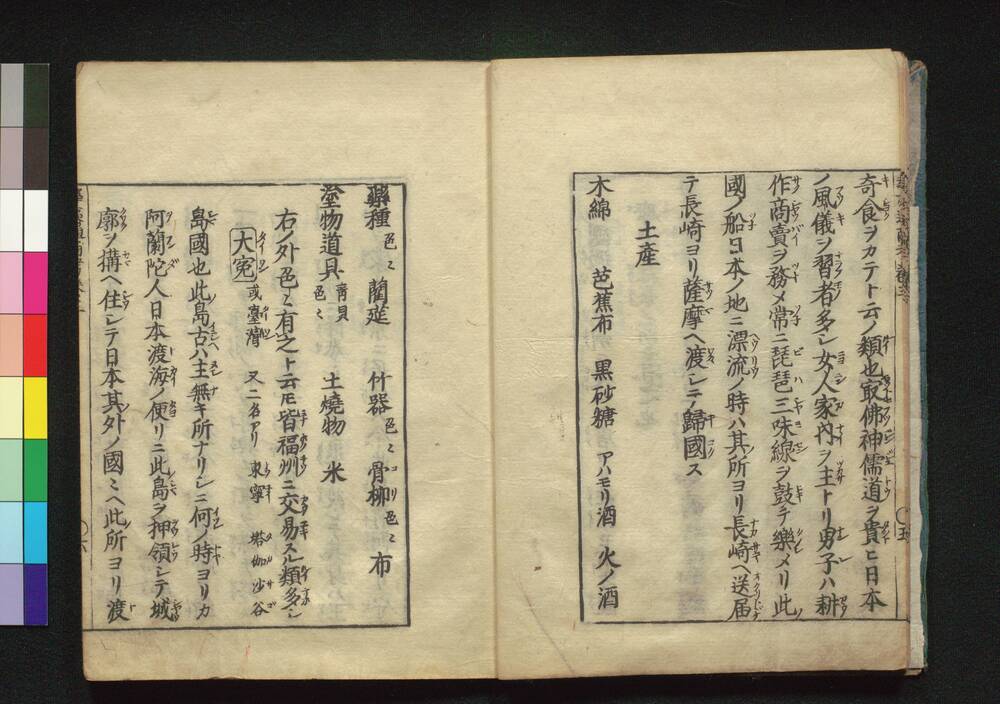 奇食ヲカテト云ノ類也最佛神儒道ヲ貴ヒ日本
ノ風儀ヲ習者多シ女人家内ヲ主トリ男子ハ耕
作商賣ヲ務メ常ニ琵琶三味線ヲ鼓テ樂メリ此
國ノ船日本ノ地ニ漂流ノ時ハ其所ヨリ長崎ヘ送届
テ長崎ヨリ薩摩ヘ渡シテ歸國ス
土産
木綿 芭蕉布 黒砂糖 アハモリ酒 火ノ酒
藥種 色〻 藺莚 什器 色〻 骨柳 色〻 布
塗物道具 青貝 色〻 土燒物 米
右ノ外色〻有之ト云ヒ皆福州ニ交易スル類多シ
大寃 或臺灣 又二名アリ 東寧 塔伽沙谷
島國也此島古ハ主無キ所ナリシニ何ノ時ヨリカ
阿蘭陀人日本渡海ノ便リニ此島ヲ押領シテ城
廓ヲ搆ヘ住シテ日本其外ノ國〻ヘ此所ヨリ渡